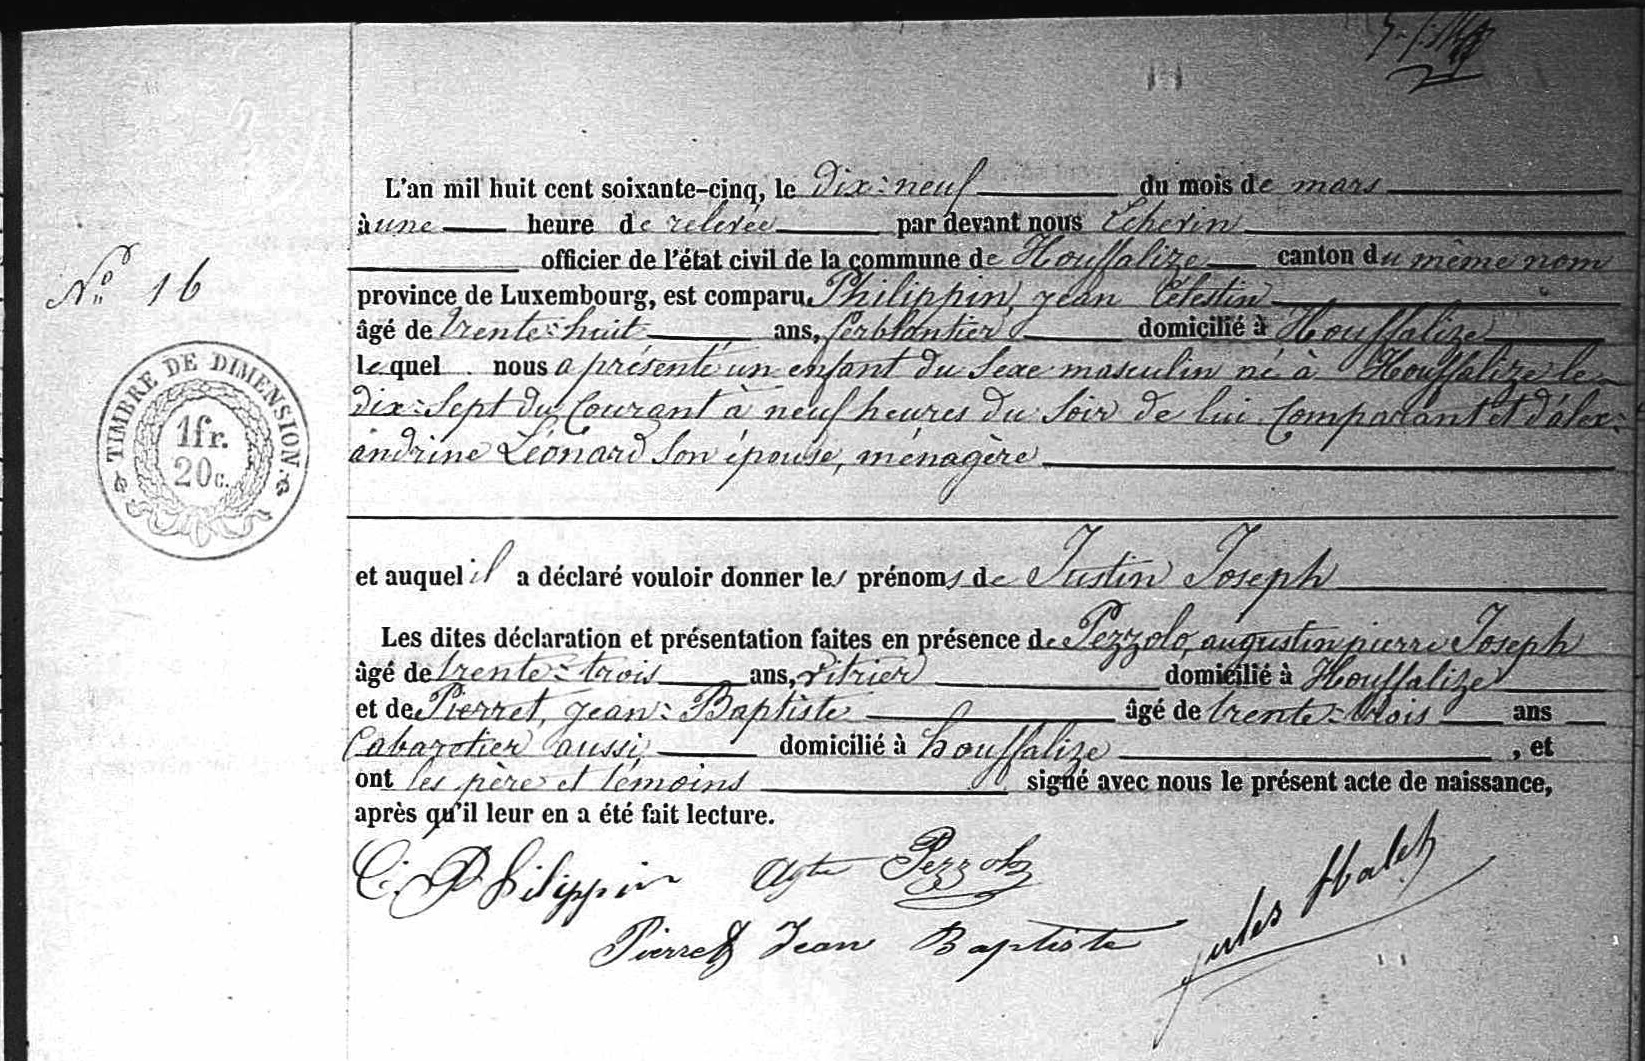 L'an mil huit cent soixante-cinq, le dix-neuf du mois de mars
à une heure de relevée par devant nous Echevin
officier de l'état civil de la commune de Houffalize canton du même nom
N° 16
province de Luxembourg, est comparu Philippin, jean Célestin
âgé de trente-huit ans, ferblantier domicilié à Houffalize
lequel nous a présenté un enfant du Sexe masculin né à Houffalize le
TIMBRE DE DIMENSION.
1fr.
20c.
dix-Sept du Courant à neuf heures du Soir de lui Comparant et d'alex-
andrine Léonard Son épouse, ménagère
et auquel il a déclaré vouloir donner les prénoms de Justin Joseph
Les dites déclaration et présentation faites en présence de Pezzolo, augustin pierre Joseph
âgé de trente-trois ans, Vitrier domicilié à Houffalize
et de Pierret, jean-Baptiste âgé de trente-trois ans
Cabaretier aussi domicilié à houffalize , et
ont les père et témoins signé avec nous le présent acte de naissance,
après qu'il leur en a été fait lecture.
C. Philippin Agte Pezzolo
Jules
Pierret Jean Baptiste